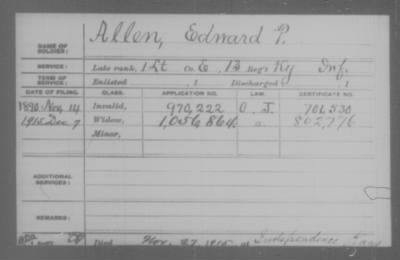 Allen, Edward P.
NAME OF SOLDIER:
SERVICE: Late rank, 1 Lt Co. E, 13 Reg't Ky Inf.
TERM OF SERVICE: Enlisted , 1 Discharged , 1
DATE OF FILING. CLASS. APPLICATION NO. LAW. CERTIFICATE NO.
1890 Nov. 14 Invalid, 970,222 O. J. 701,530
1915 Dec 7 Widow, 1,056,864 802,776
Minor,
ADDITIONAL SERVICES:
REMARKS:
Died Nov. 27 1915 at Independence